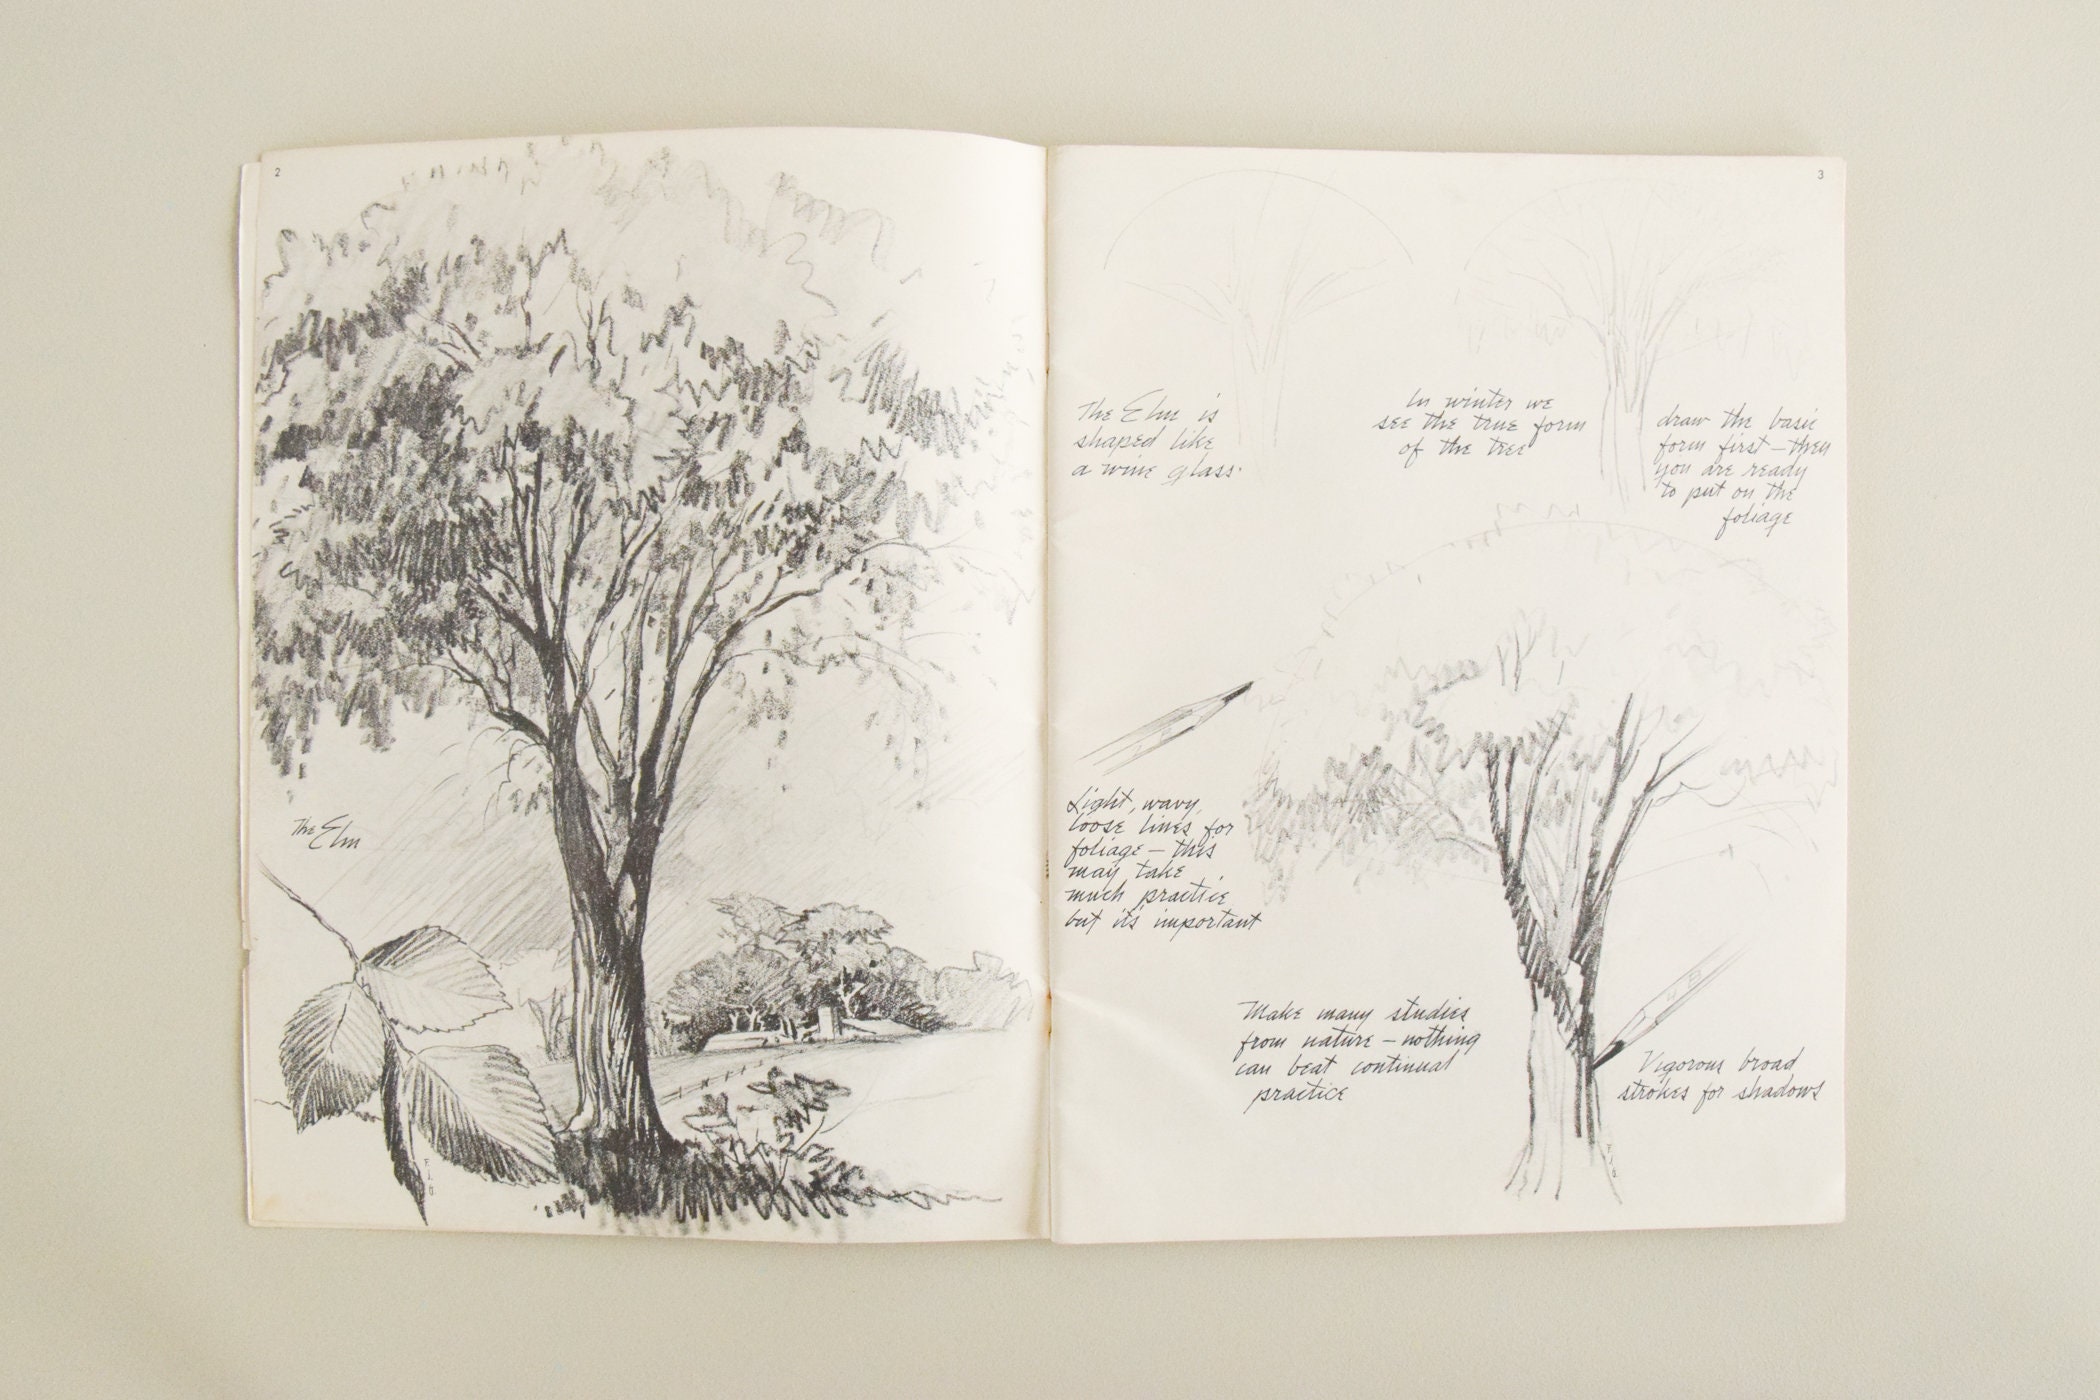 2
The Elm
F J G
3
The Elm is
shaped like
a wine glass.
In winter we
see the true form
of the tree
draw the basic
form first – then
you are ready
to put on the
foliage
Light, wavy,
loose lines for
foliage – this
may take
much practice
but it's important
Make many studies
from nature – nothing
can beat continual
practice
Vigorous broad
strokes for shadows
F J G